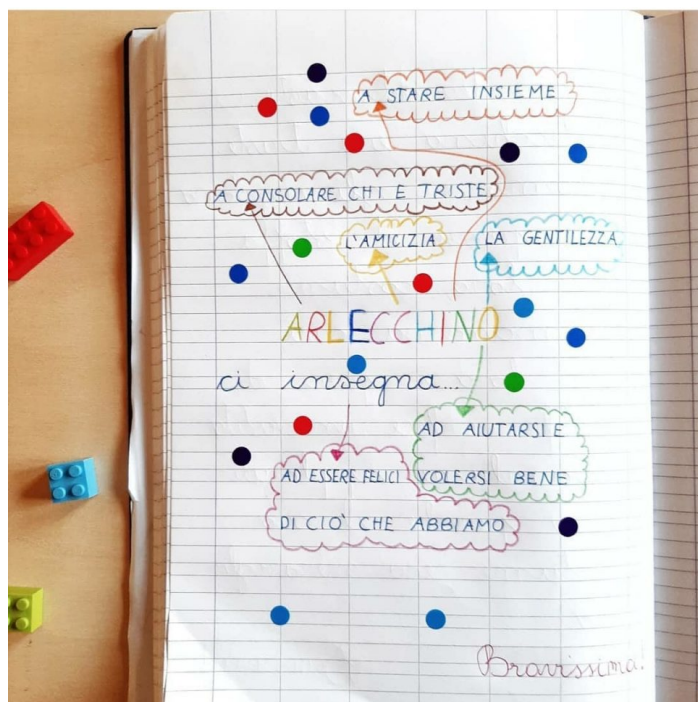 A STARE INSIEME
A CONSOLARE CHI E TRISTE
L'AMICIZIA
LA GENTILEZZA
ARLECCHINO
ci insegna...
AD AIUTARSI E
VOLERSI BENE
AD ESSERE FELICI
DI CIO' CHE ABBIAMO
Bravissima!